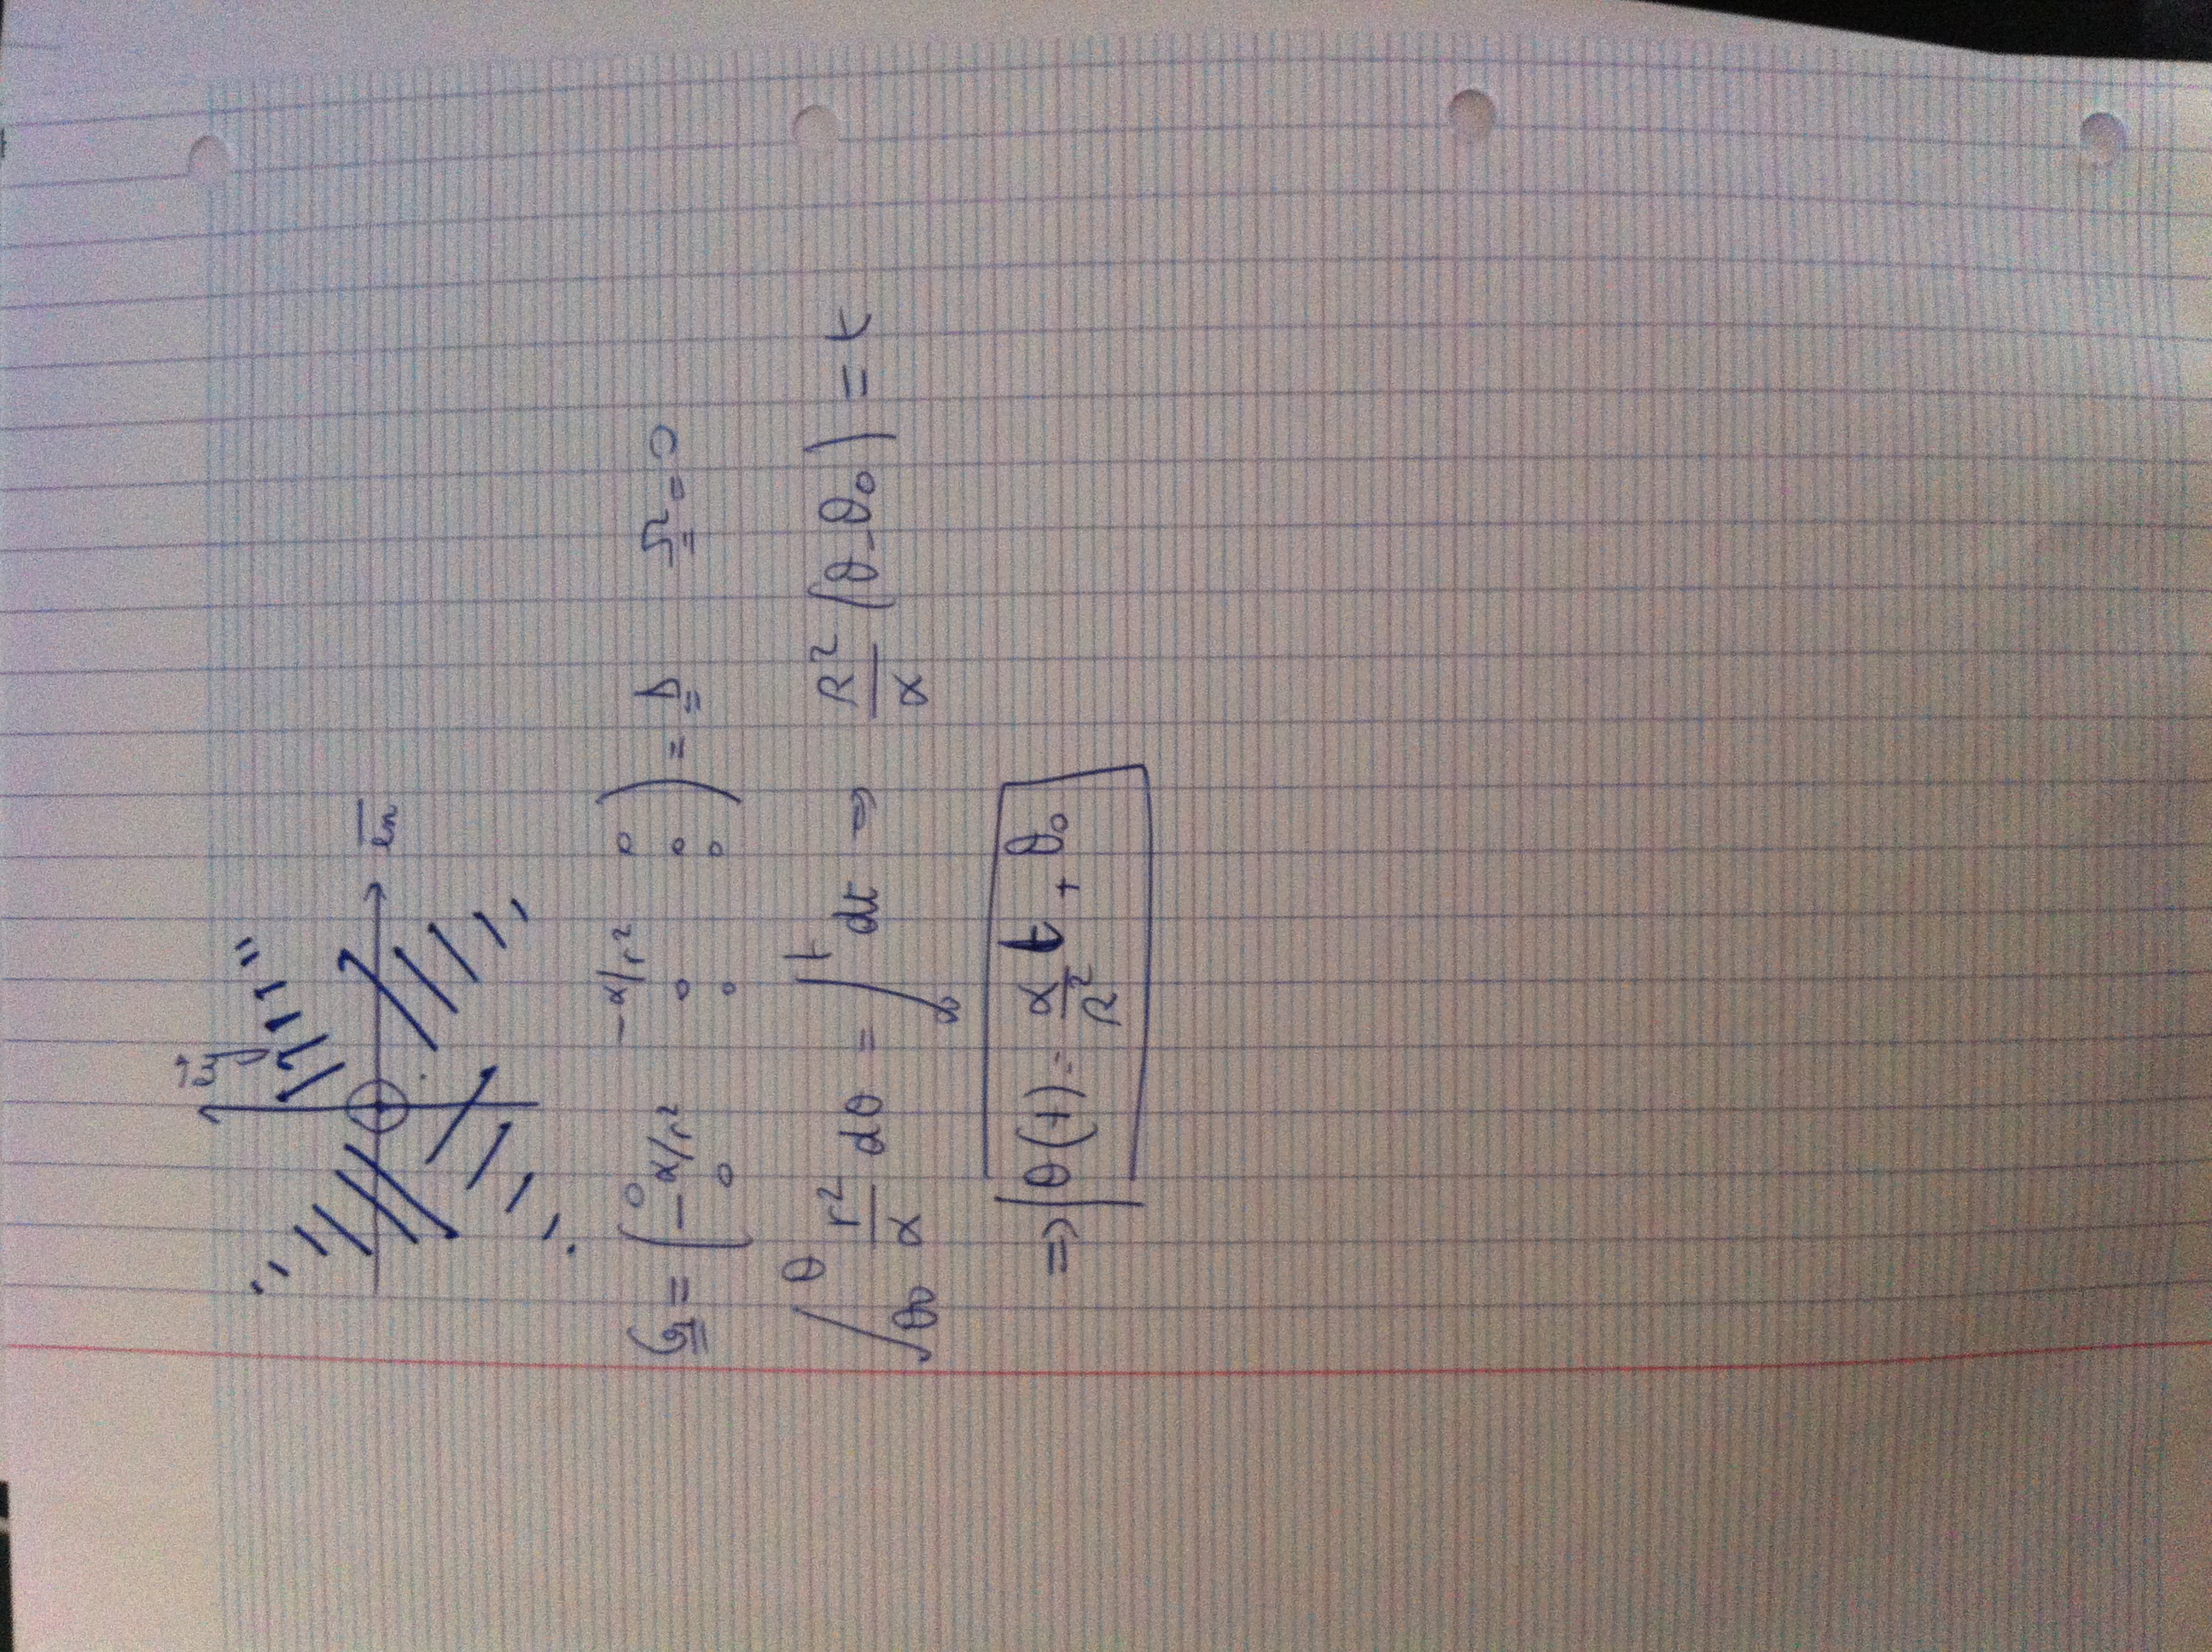 e⃗y
e̅x
G̳ = ( 0 -α/r² 0
-α/r² 0 0
0 0 0 ) = D̳ Ω̳ = 0
∫_θ₀^θ r²/α dθ = ∫₀^t dt ⇒ R²/α (θ-θ₀) = t
⇒ θ(t) = α/R² t + θ₀